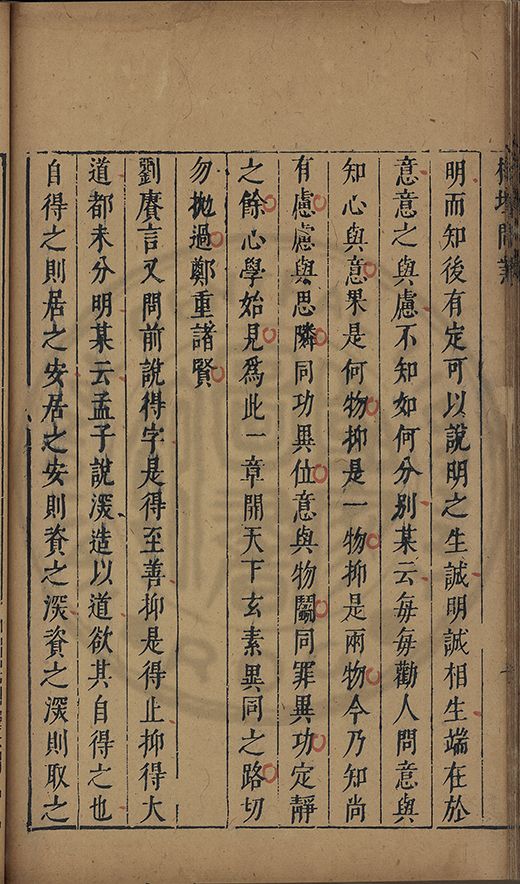 明而知後有定可以說明之生誠明誠相生端在於
意意之與慮不知如何分别某云每每勸人問意與
知心與意果是何物抑是一物抑是兩物今乃知尚
有慮慮與思隣同功異位意與物鬭同罪異功定靜
之餘心學始見爲此一章開天下玄素異同之路切
勿拋過鄭重諸賢
劉賡言又問前說得字是得至善抑是得止抑得大
道都未分明某云孟子說深造以道欲其自得之也
自得之則居之安居之安則資之深資之深則取之